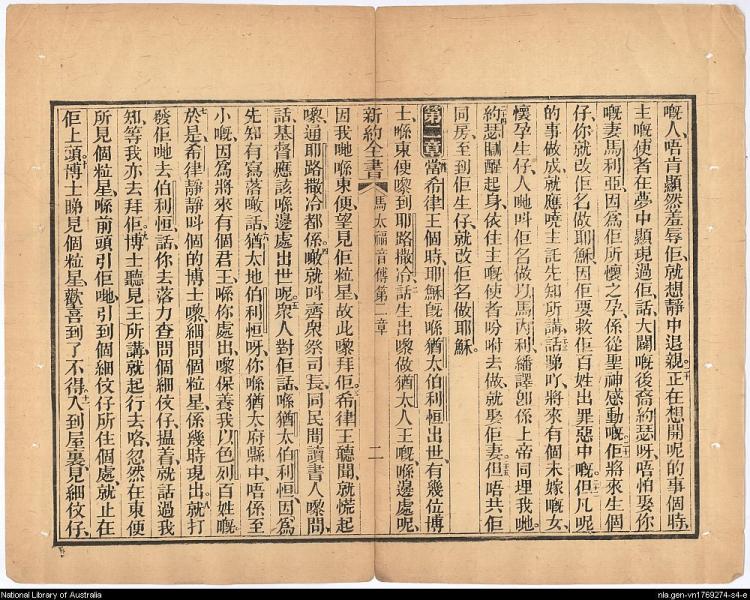 嘅人、唔肯顯然羞辱佢、就想靜中退親。二十正在想開呢的事個時、
主嘅使者在夢中顯現過佢、話大闢嘅後裔約瑟呀、唔怕娶你
嘅妻馬利亞、因為佢所懷之孕、係從聖神感動嘅。二十一佢將來生個
仔、你就改佢名做耶穌、因佢要救佢百姓出罪惡中嘅。二十二但凡呢
的事做成、就應曉主託先知所講話、二十三睇吓、將來有個未嫁嘅女、
懷孕生仔、人哋呌佢名做以馬內利、繙譯卽係上帝同埋我哋。二十四
約瑟瞓醒起身、依住主嘅使者吩咐去做、就娶佢妻。二十五但唔共佢
同房、至到佢生仔、就改佢名做耶穌。
第二章 當希律王個時、耶穌旣喺猶太伯利恒出世、有幾位博
士、喺東便嚟到耶路撒冷、話、二生出嚟做猶太人王嘅喺邊處呢、
新約全書 馬太福音傳第二章 二
因我哋喺東便望見佢粒星、故此嚟拜佢。三希律王聽聞、就慌起
嚟、通耶路撒冷都係噉、四就呌齊衆祭司長、同民間讀書人嚟、問
話、基督應該喺邊處出世呢。五衆人對佢話、喺猶太伯利恒、因為
先知有寫落嘅話、六猶太地伯利恒呀、你喺猶太府縣中、唔係至
小嘅、因為將來有個君王、喺你處出嚟、保養我以色列百姓嘅。七
於是希律靜靜呌個的博士嚟、細問個粒星、係幾時現出。八就打
發佢哋去伯利恒、話、你去落力查問個細蚊仔、揾着就話過我
知、等我亦去拜佢。九博士聽見王所講、就起行去咯、忽然在東便
所見個粒星、喺前頭引佢哋、引到個細蚊仔所住個處、就止在
佢上頭。十博士睇見個粒星、歡喜到了不得。十一入到屋裏、見細蚊仔、
National Library of Australia
nla.gen-vn1769274-s4-e